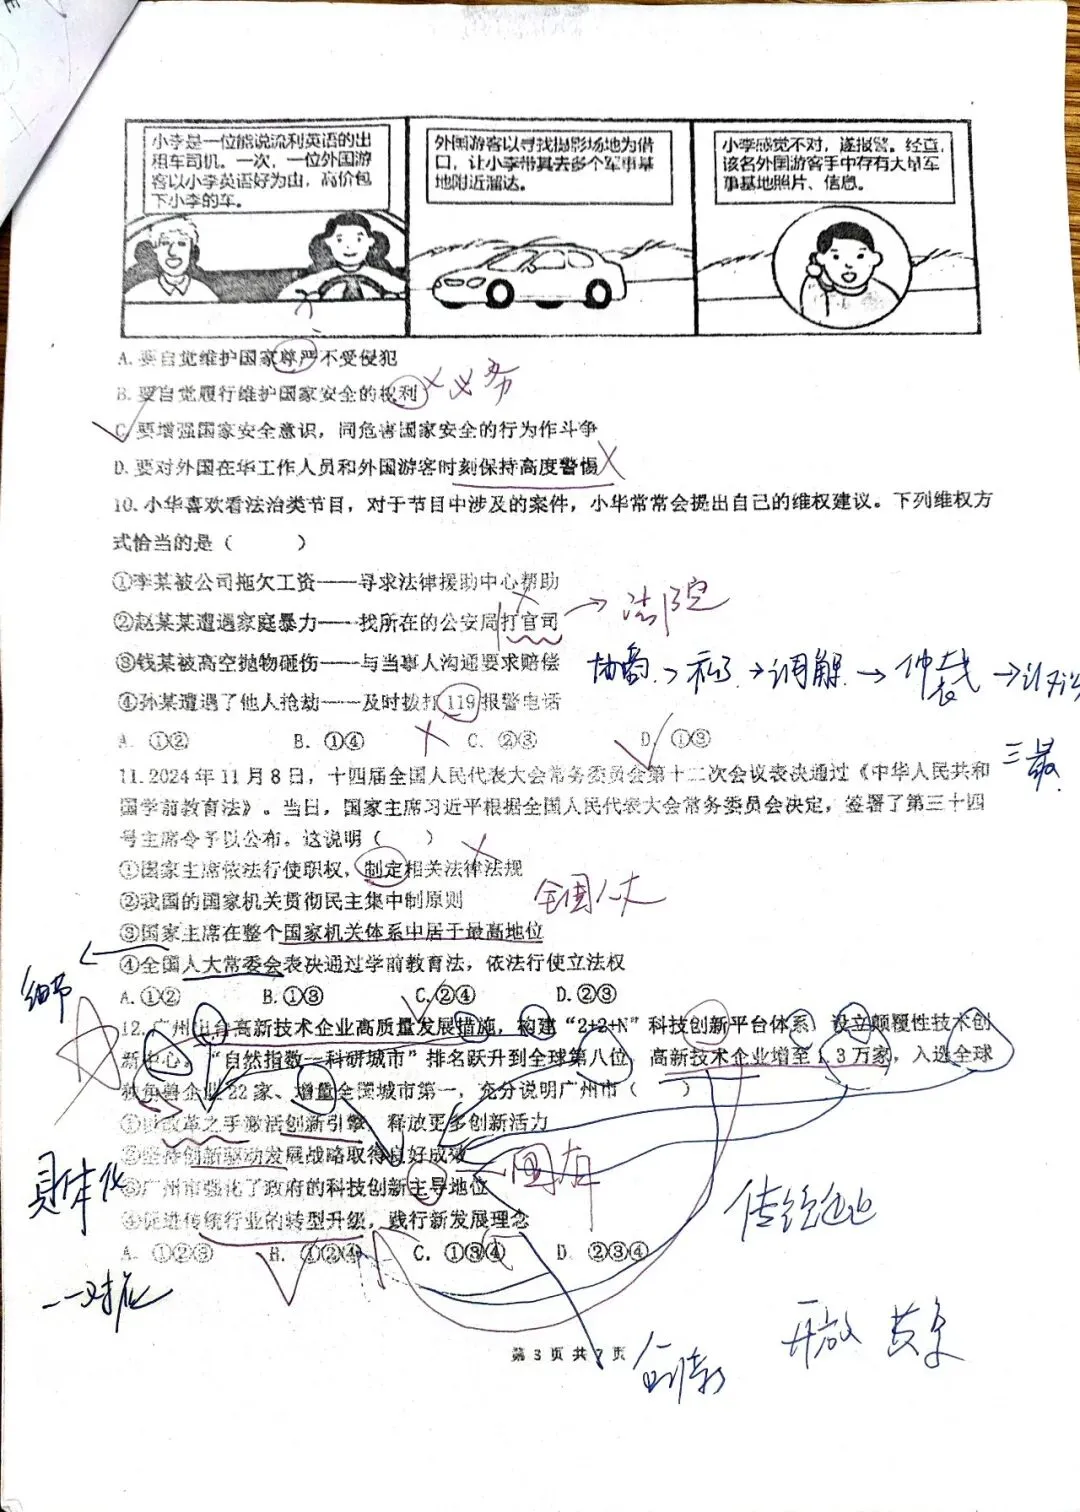 小李是一位能说流利英语的出
租车司机。一次，一位外国游
客以小李英语好为由，高价包
下小李的车。
外国游客以寻找摄影场地为借
口，让小李带其去多个军事基
地附近溜达。
小李感觉不对，遂报警。经查，
该名外国游客手中存有大量军
事基地照片、信息。
A. 要自觉维护国家尊严不受侵犯
B. 要自觉履行维护国家安全的权利 × 义务
C. 要增强国家安全意识，同危害国家安全的行为作斗争
D. 要对外国在华工作人员和外国游客时刻保持高度警惕 ×
10. 小华喜欢看法治类节目，对于节目中涉及的案件，小华常常会提出自己的维权建议。下列维权方
式恰当的是（ ）
①李某被公司拖欠工资——寻求法律援助中心帮助
②赵某某遭遇家庭暴力——找所在的公安局打官司 → 法院
③钱某被高空抛物砸伤——与当事人沟通要求赔偿
协商 → 和了 → 调解 → 仲裁 →
④孙某遭遇了他人抢劫——及时拨打119报警电话
A. ①② B. ①④ C. ②③ D. ①③
三最
11. 2024年11月8日，十四届全国人民代表大会常务委员会第十二次会议表决通过《中华人民共和
国学前教育法》。当日，国家主席习近平根据全国人民代表大会常务委员会决定，签署了第三十四
号主席令予以公布。这说明（ ）
①国家主席依法行使职权，制定相关法律法规 ×
②我国的国家机关贯彻民主集中制原则
全国人大
③国家主席在整个国家机关体系中居于最高地位
④全国人大常委会表决通过学前教育法，依法行使立法权
细节
A. ①② B. ①③ C. ②④ D. ②③
12. 广州出台高新技术企业高质量发展措施，构建“2+2+N”科技创新平台体系，设立颠覆性技术创
新中心。“自然指数—科研城市”排名跃升到全球第八位，高新技术企业增至1.3万家，入选全球
独角兽企业22家、增量全国城市第一，充分说明广州市（ ）
①以改革之手激活创新引擎，释放更多创新活力
②坚持创新驱动发展战略取得良好成效
③广州市强化了政府的科技创新主导地位 国有
具体化
④促进传统行业的转型升级，践行新发展理念
A. ①②③ B. ①②④ C. ①③④ D. ②③④
一一对应
开放
创新
第 3 页 共 7 页